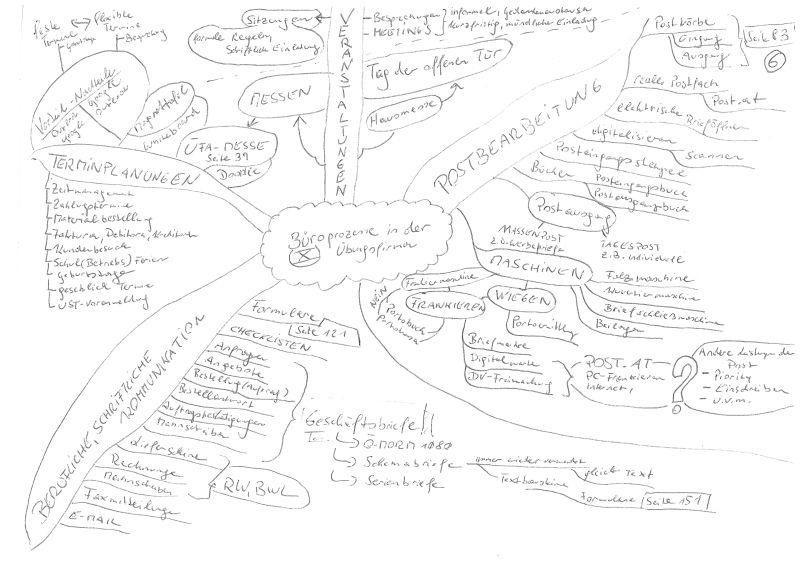 Büroprozesse in der
Übungsfirma
VERANSTALTUNGEN
Sitzungen
formale Regeln,
Schriftliche Einladung
Besprechungen
MEETINGS
informell, Gedankenaustausch
kurzfristig, mündliche Einladung
Tag der offenen Tür
Hausmesse
MESSEN
ÜFA-MESSE
Seite 39
Doodle
feste
Termine
flexible
Termine
Besprechung
Magnettafel
Whiteboard
TERMINPLANUNGEN
Zeitmanagement
Zahlungstermine
Materialbestellung
Faktura, Debitoren, Kreditoren
Kundenbesuch
Schul(Betriebs) Ferien
Geburtstage
geschäftl. Termine
UST-Voranmeldung
POSTBEARBEITUNG
Postkörbe
Eingang
Ausgang
Seite 83
6
reales Postfach
Post.at
digitalisieren
Scannen
Posteingangsstempel
Bücher
Posteingangsbuch
Postausgangsbuch
Postausgang
MASSENPOST
z.B. Werbebriefe
TAGESPOST
z.B. individuelle
MASCHINEN
Falzmaschine
Kuvertiermaschine
Briefschließmaschine
Beilagen
Frankiermaschine
NEIN
FRANKIEREN
Portobuch
Portokassa
WIEGEN
Portoermittlg
Briefmarke
Digitalmarke
DV-Freimachung
POST.AT
PC-Frankieren
Internet,
?
Andere Leistungen der
Post
- Priority
- Einschreiben
- u.v.m.
BERUFLICHE, SCHRIFTLICHE
KOMMUNIKATION
Formulare
Seite 121
CHECKLISTEN
Anfragen
Angebote
Bestellung (Auftrag)
Bestellantwort
Auftragsbestätigungen
Lieferscheine
Rechnungen
Mahnschreiben
Faxmitteilungen
E-MAIL
RW, BWL
Geschäftsbriefe!!
Ö-NORM 1080
Schemabriefe
Serienbriefe
immer wieder verwendet
gleicher Text
Textbausteine
Formulare Seite 151